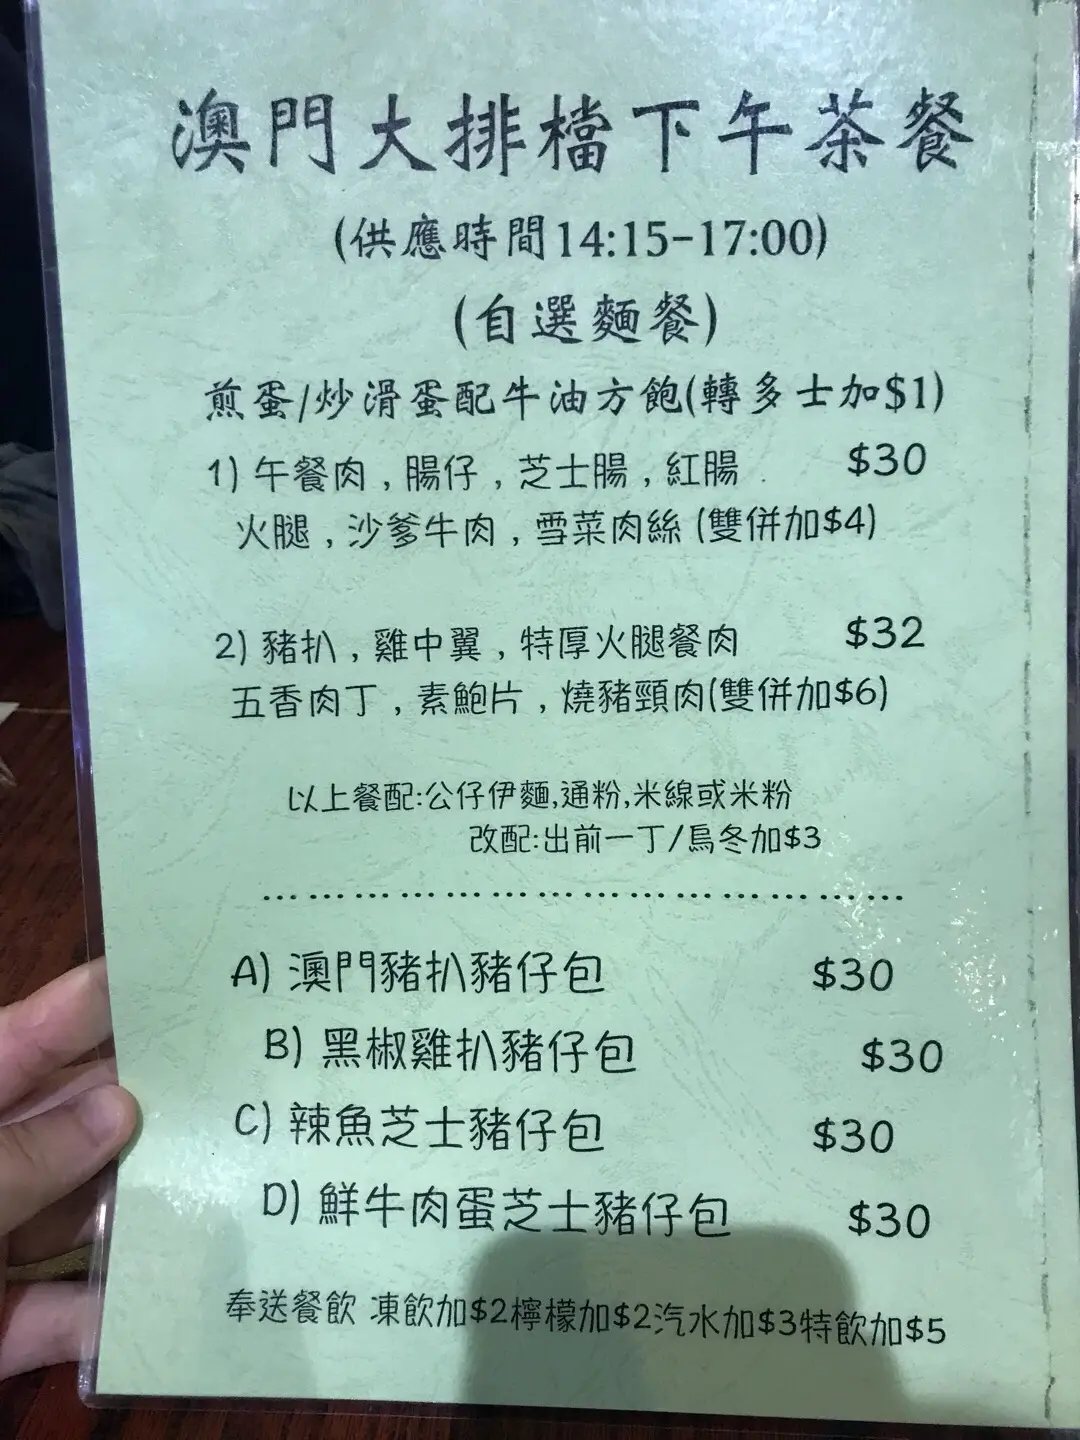 澳門大排檔下午茶餐
(供應時間14:15-17:00)
(自選麵餐)
煎蛋/炒滑蛋配牛油方飽(轉多士加$1)
1) 午餐肉 , 腸仔 , 芝士腸 , 紅腸 $30
火腿 , 沙爹牛肉 , 雪菜肉絲 (雙併加$4)
2) 豬扒 , 雞中翼 , 特厚火腿餐肉 $32
五香肉丁 , 素鮑片 , 燒豬頸肉(雙併加$6)
以上餐配:公仔伊麵,通粉,米線或米粉
改配:出前一丁/烏冬加$3
A) 澳門豬扒豬仔包 $30
B) 黑椒雞扒豬仔包 $30
C) 辣魚芝士豬仔包 $30
D) 鮮牛肉蛋芝士豬仔包 $30
奉送餐飲 凍飲加$2檸檬加$2汽水加$3特飲加$5